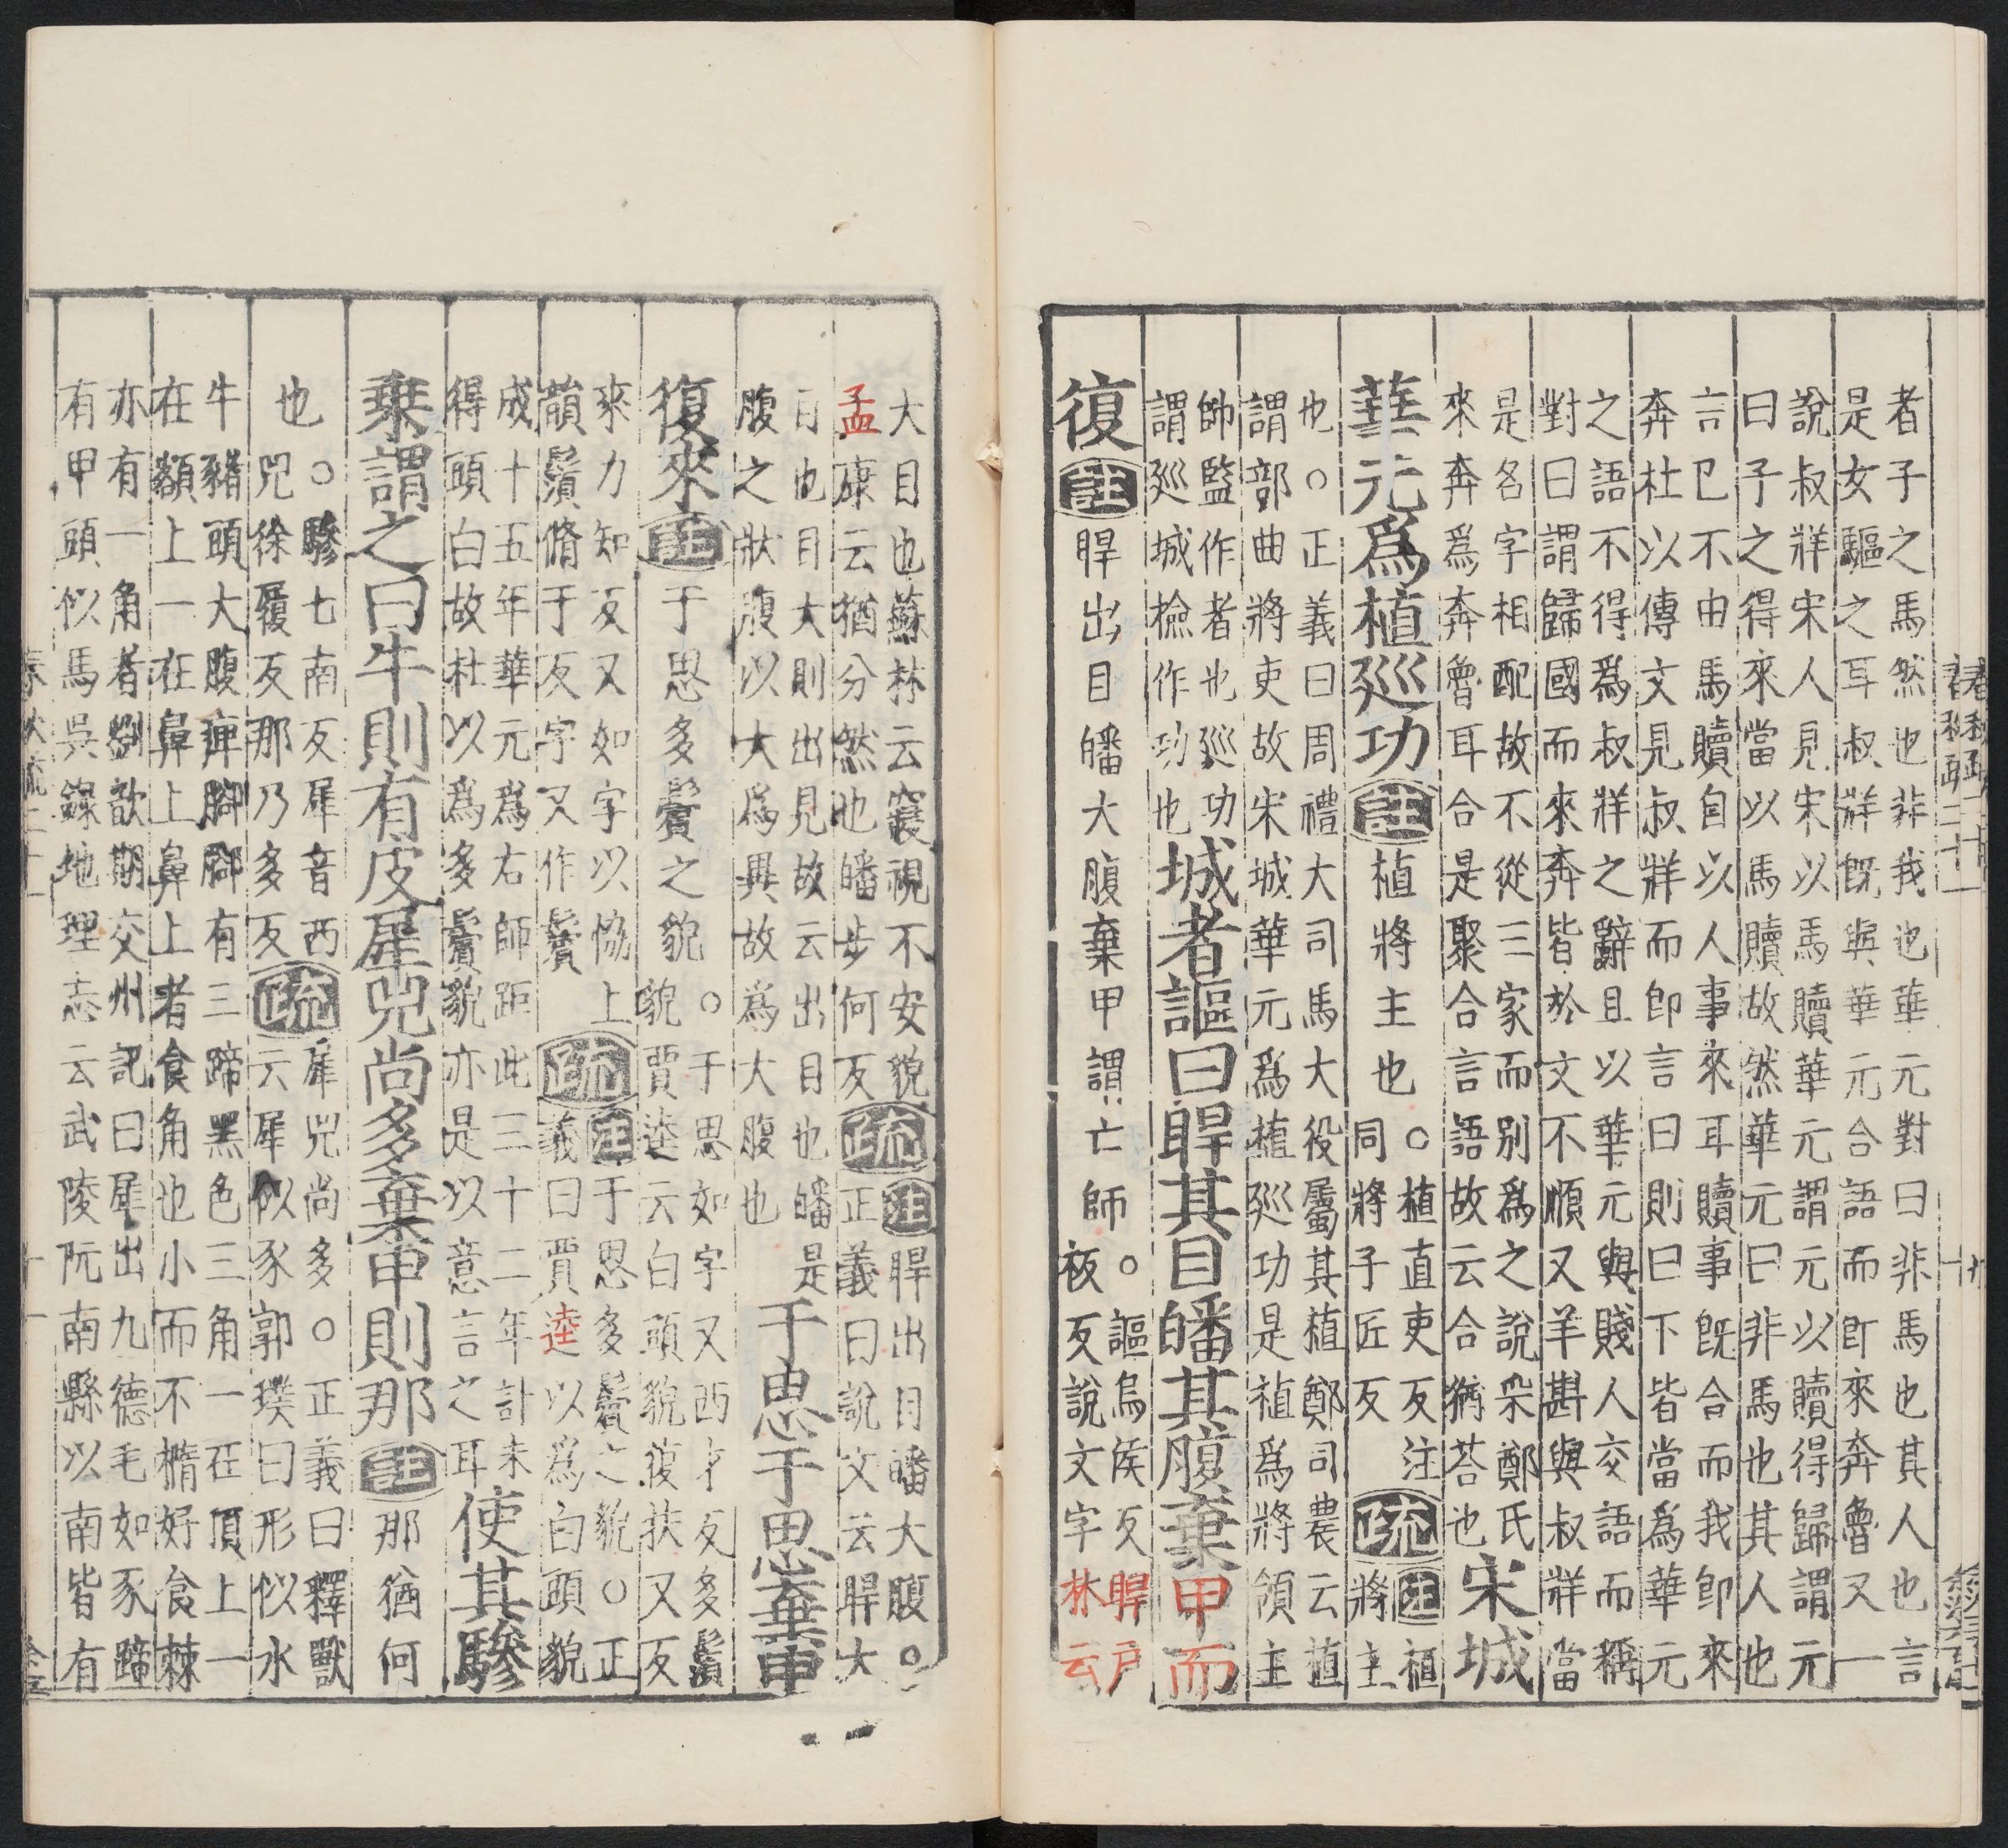 春秋疏二十一
者子之馬然也非我也華元對曰非馬也其人也言
是女驅之耳叔牂旣與華元合語而即來奔魯又一
說叔牂宋人見宋以馬贖華元謂元以贖得歸謂元
曰子之得來當以馬贖故然華元曰非馬也其人也
言巳不由馬贖自以人事來耳贖事旣合而我即來
奔杜以傳文見叔牂而即言曰則曰下皆當爲華元
之語不得爲叔牂之辭且以華元與賤人交語而稱
對曰謂歸國而來奔皆於文不順又羊斟與叔牂當
是名字相配故不從三家而別爲之說采鄭氏
來奔爲奔魯耳合是聚合言語故云合猶荅也宋城
華元爲植廵功註植將主也○植直吏反注
同將子匠反疏註植
將主
也○正義曰周禮大司馬大役屬其植鄭司農云植
謂部曲將吏故宋城華元爲植廵功是植爲將領主
帥監作者也廵功
謂廵城檢作功也城者謳曰睅其目皤其腹棄甲而
復註睅出目皤大腹棄甲謂亡師○謳烏侯反睅戶
板反說文字林云
大目也蘇林云寢視不安貌
孟康云猶分然也皤步何反疏註睅出目皤大腹○
正義曰說文云睅大
目也目大則出見故云出目也皤是
腹之狀腹以大爲異故爲大腹也于思于思棄甲
復來註于思多鬢之貌○于思如字又西才反多鬚
貌賈逵云白頭貌復扶又反
來力知反又如字以恊上
韻鬚脩于反字又作鬢疏註于思多鬢之貌○正
義曰賈逵以爲白頭貌
成十五年華元爲右師距此三十二年計未
得頭白故杜以爲多鬢貌亦是以意言之耳使其驂
乗謂之曰牛則有皮犀兕尚多棄甲則那註那猶何
也○驂七南反犀音西
兕徐履反那乃多反疏犀兕尚多○正義曰釋獸
云犀似豕郭璞曰形似水
牛豬頭大腹庳腳腳有三蹄黑色三角一在頂上一
在額上一在鼻上鼻上者食角也小而不橢好食棘
亦有一角者劉歆期交州記曰犀出九德毛如豕蹄
有甲頭似馬吳錄地理志云武陵阮南縣以南皆有